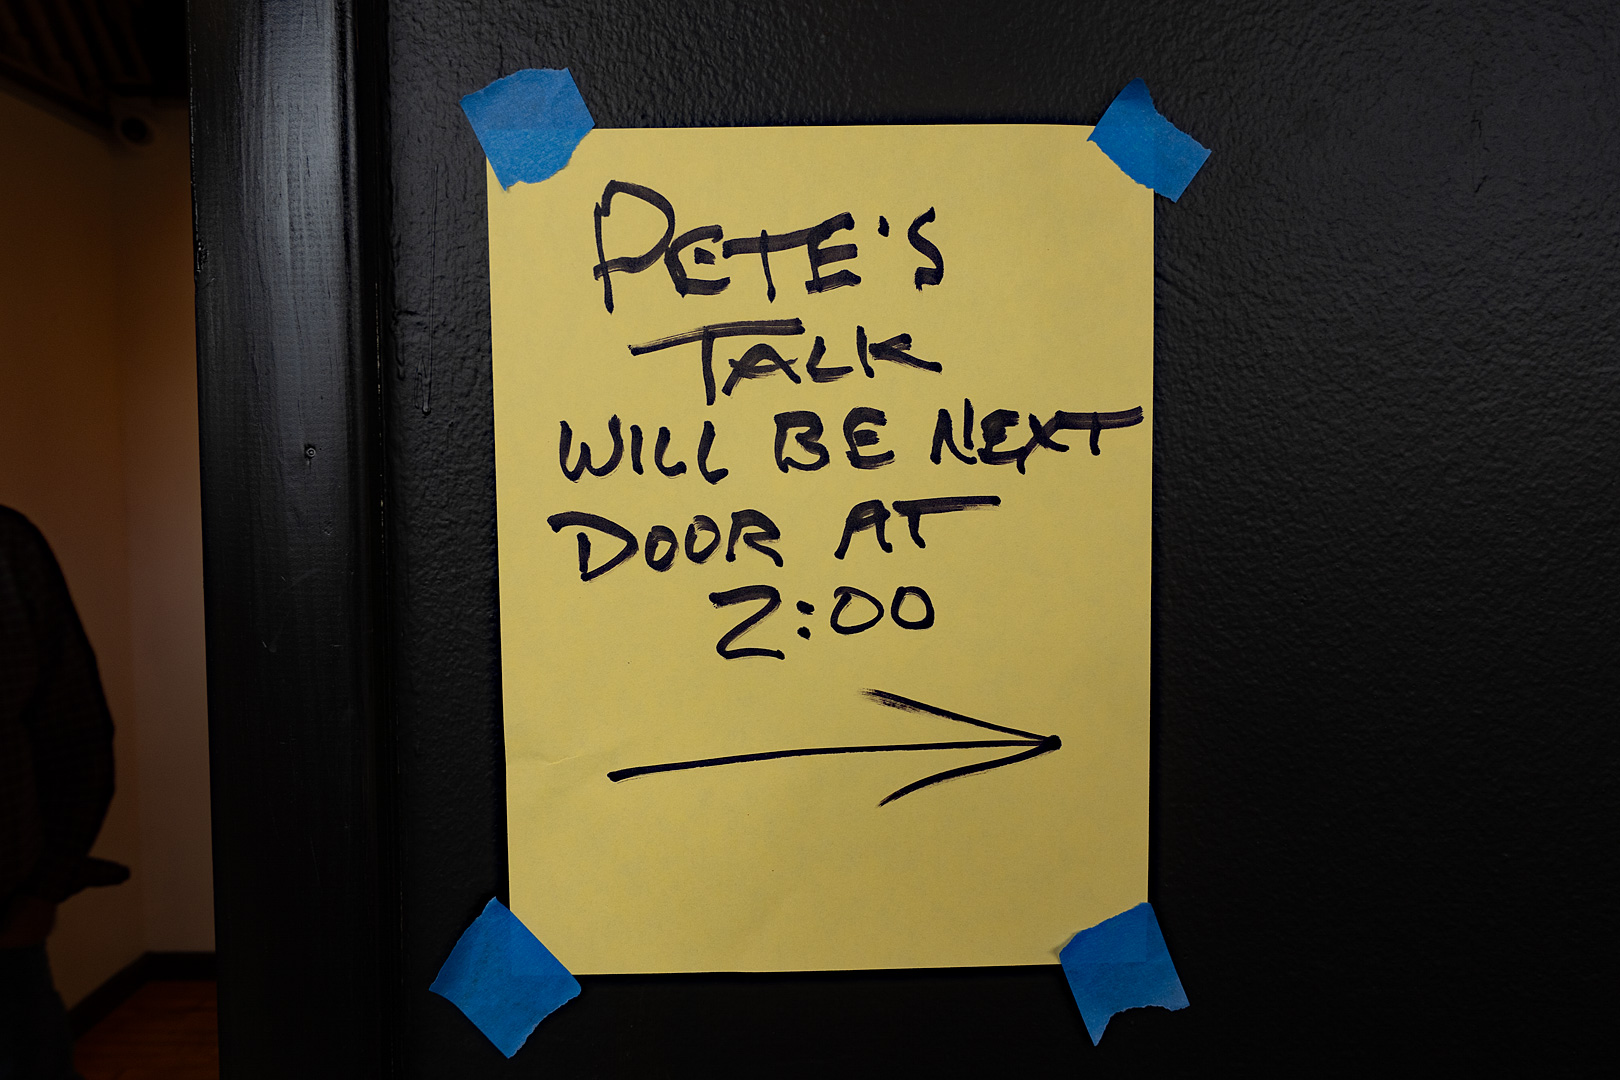 PETE'S
TALK
WILL BE NEXT
DOOR AT
2:00